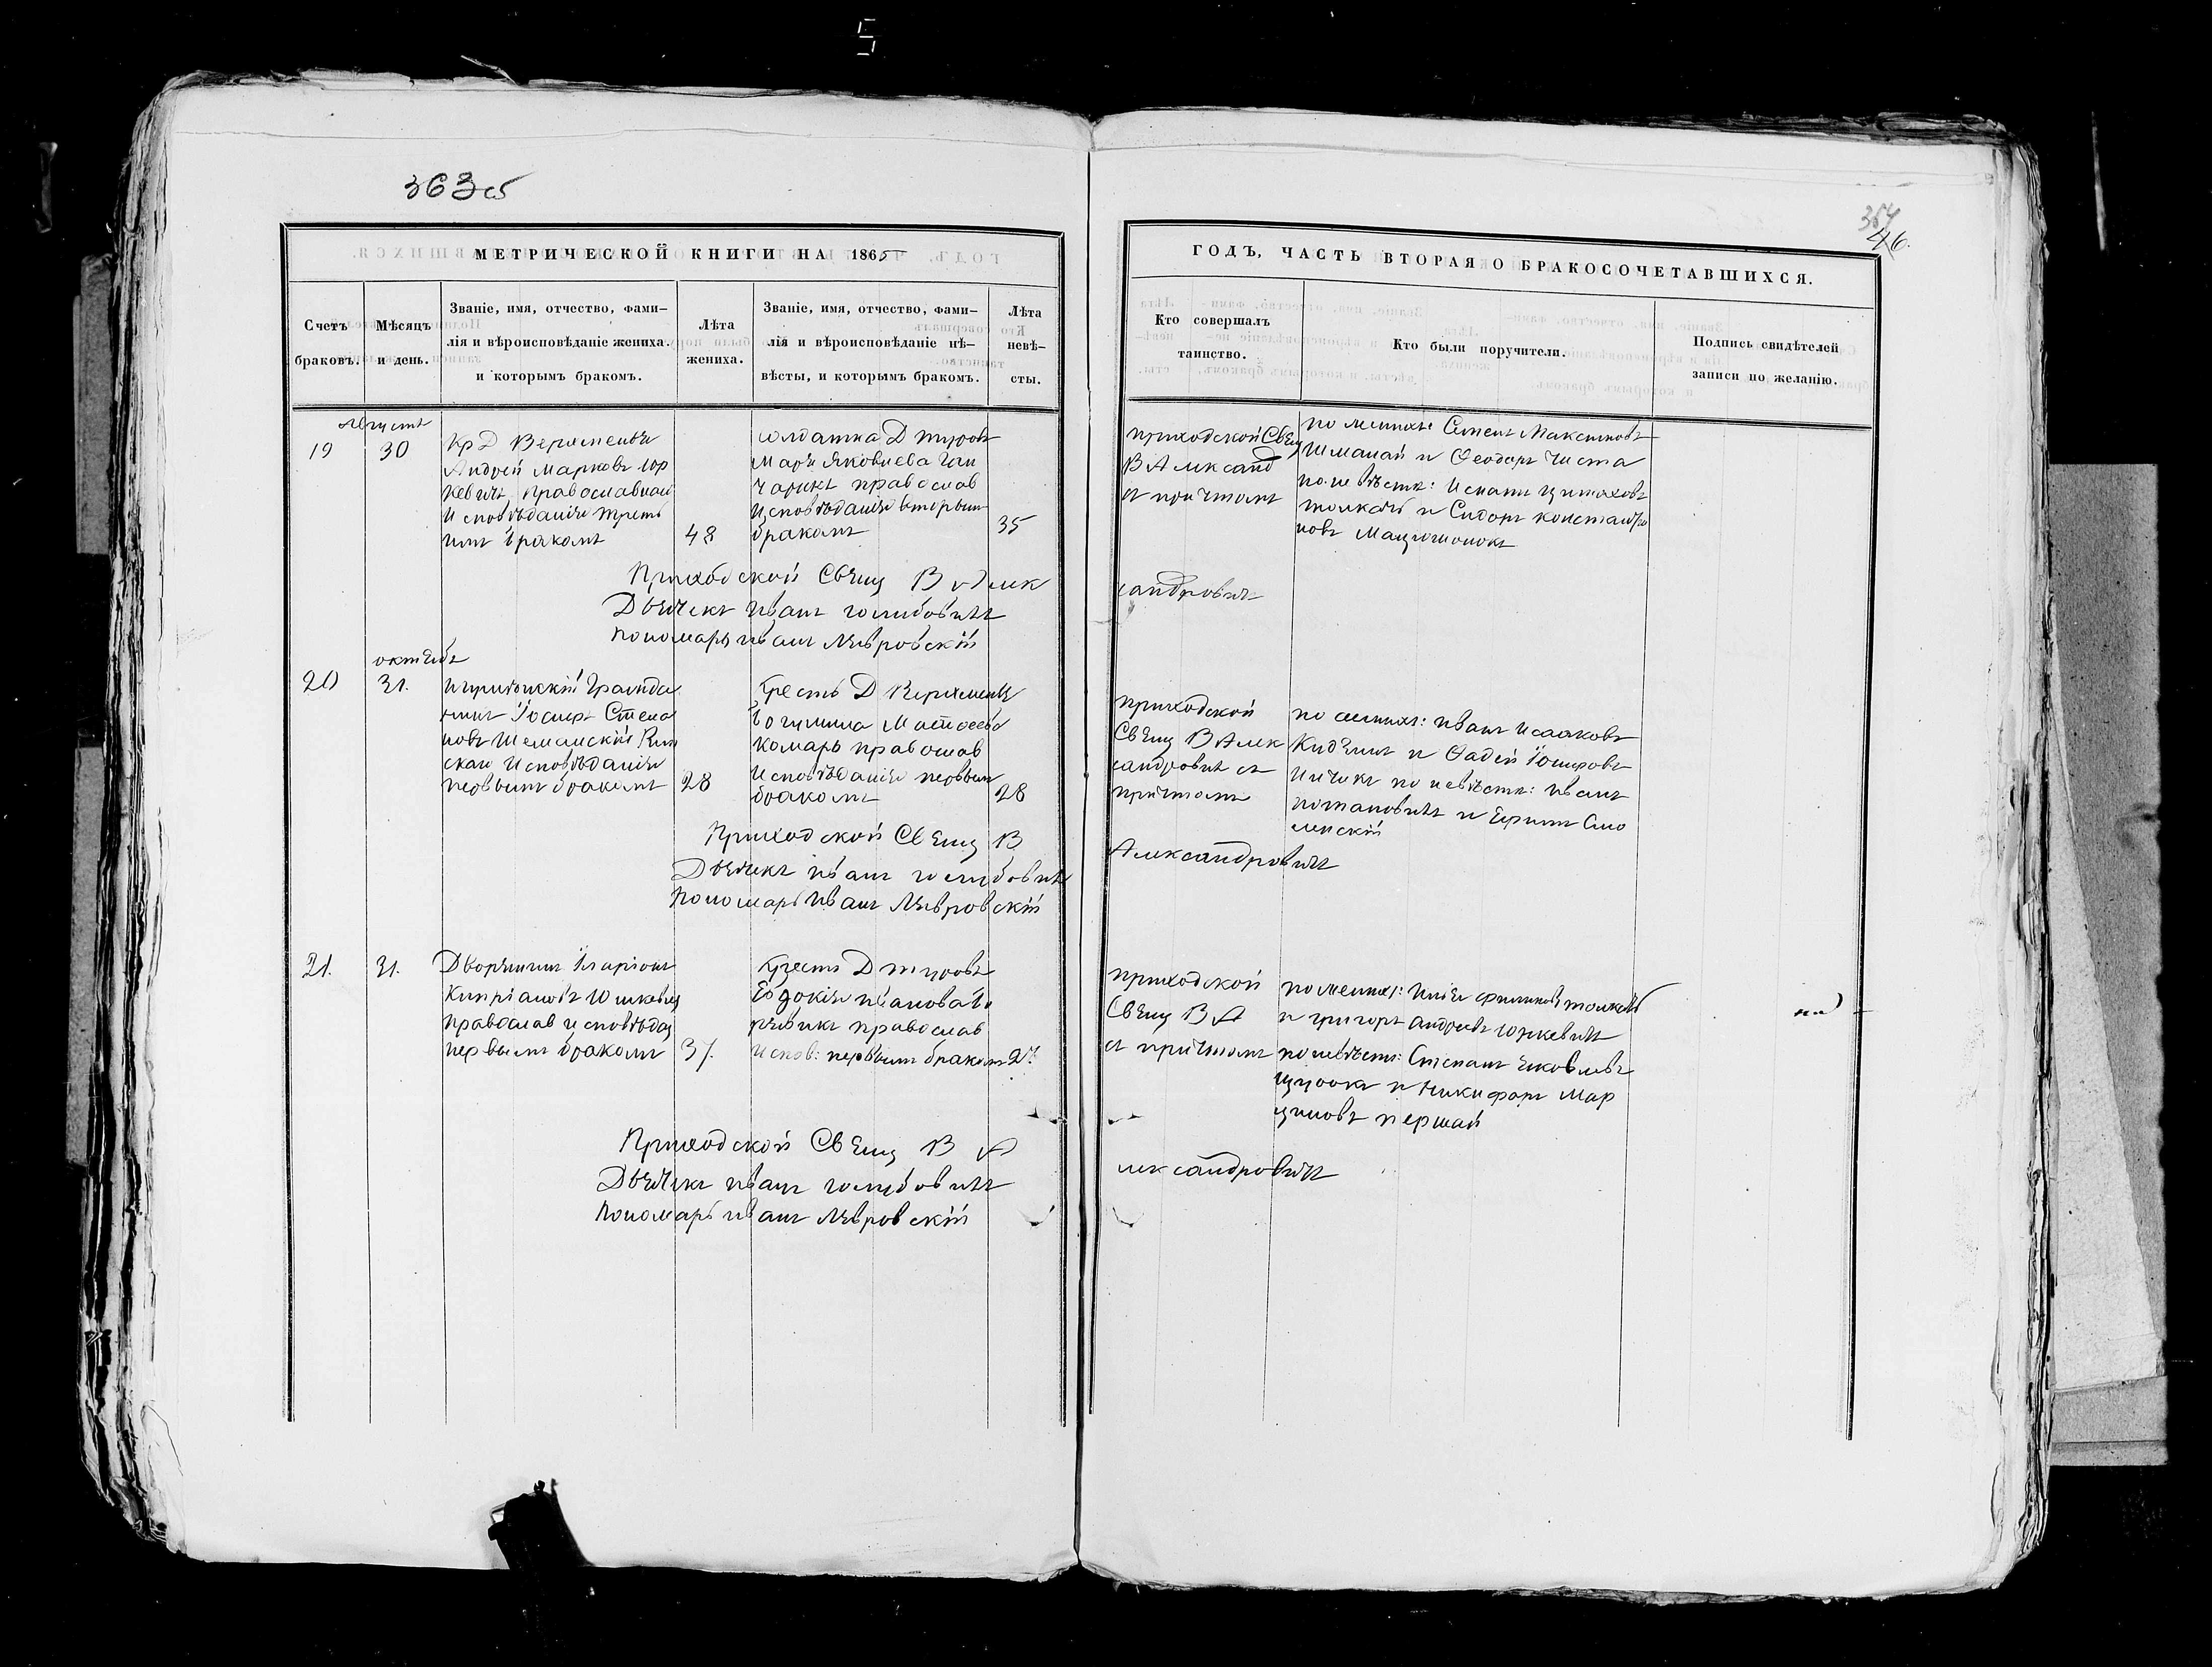 363 об
364
46.
МЕТРИЧЕСКОЙ КНИГИ НА 1865
ГОДЪ, ЧАСТЬ ВТОРАЯ О БРАКОСОЧЕТАВШИХСЯ.
Счетъ браковъ.
Мѣсяцъ и день.
Званіе, имя, отчество, фами-
лія и вѣроисповѣданіе жениха.
и которымъ бракомъ.
Лѣта жениха.
Званіе, имя, отчество, фами-
лія и вѣроисповѣданіе нѣ-
вѣсты, и которымъ бракомъ.
Лѣта невѣ-
сты.
Кто совершалъ
таинство.
Кто были поручители.
Подпись свидѣтелей
записи по желанію.
августъ
19
30
Кр Д
Андрей Марковъ Юр
кевичъ Православнаи
Исповѣданія треть
имъ бракомъ
48
солдатка Д Туровъ
Марія Яковлева Ган
чарикъ православ
Исповѣданія вторымъ
бракомъ
35
приходской Свящ
В Александ
съ причтомъ
по женихѣ Семенъ Максимовъ
Шманай и Ѳеодоръ Чиста
по невѣстѣ:
и Сидоръ Константи
новъ
Приходской Свящ В Алек
сандровичъ
Дьячекъ Иванъ Голубовичъ
Пономарь Иванъ Лавровскій
октябь
20
31.
Гражда
нинъ Іосифъ Степа
новъ Шеманскій Рим
скаго Исповѣданія
первымъ бракомъ
28
Кресть Д
Богумила Матѳеева
Комаръ православ
Исповѣданія первым
бракомъ
28
приходской
Свящ В Алек
сандровичъ съ
причтомъ
по женихѣ: Иванъ Исааковъ
и Фадей Іосифовъ
по невѣстѣ: Иванъ
Потаповичъ и Ефимъ Смо
ленскій
Приходской Свящ В
Александровичъ
Дьячекъ Иванъ Голубовичъ
Пономарь Иванъ Лавровскій
21.
31.
Дворянинъ Иларіонъ
Кипріановъ Юшкевич
Православ исповѣдан
первымъ бракомъ
37.
Кресть Д Туровъ
Евдокія Иванова
православ
Испов: первымъ бракомъ
приходской
Свящ В А
съ причтомъ
по женихѣ: Илія
и Григоръ Андреевъ Юркевичъ
по невѣстѣ: Степанъ Яковлевъ
и Никифоръ Мар
циновъ Першай
Приходской Свящ В А
лександровичъ
Дьячекъ Иванъ Голубовичъ
Пономарь Иванъ Лавровскій